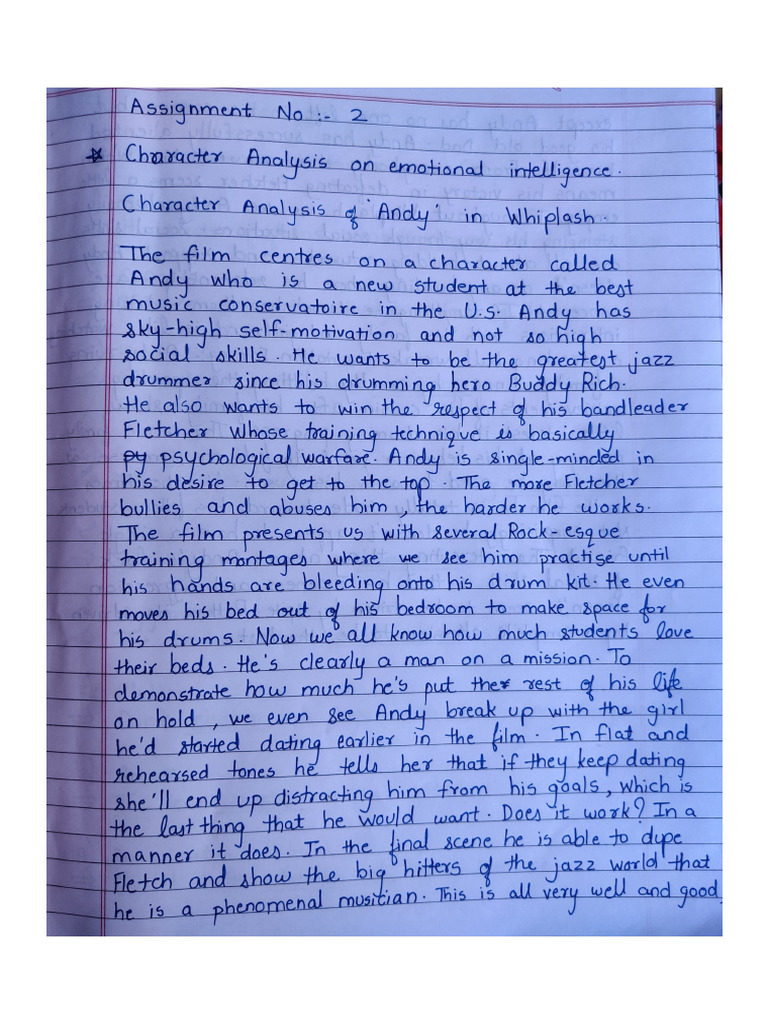 Assignment No :- 2
* Character Analysis on emotional intelligence.
Character Analysis of 'Andy' in Whiplash.
The film centres on a character called
Andy who is a new student at the best
music conservatoire in the U.S. Andy has
sky-high self-motivation and not so high
social skills. He wants to be the greatest jazz
drummer since his drumming hero Buddy Rich.
He also wants to win the respect of his bandleader
Fletcher whose training technique is basically
psychological warfare. Andy is single-minded in
his desire to get to the top. The more Fletcher
bullies and abuses him, the harder he works.
The film presents us with several Rock-esque
training montages where we see him practise until
his hands are bleeding onto his drum kit. He even
moves his bed out of his bedroom to make space for
his drums. Now we all know how much students love
their beds. He's clearly a man on a mission. To
demonstrate how much he's put the rest of his life
on hold, we even see Andy break up with the girl
he'd started dating earlier in the film. In flat and
rehearsed tones he tells her that if they keep dating
she'll end up distracting him from his goals, which is
the last thing that he would want. Does it work? In a
manner it does. In the final scene he is able to dupe
Fletch and show the big hitters of the jazz world that
he is a phenomenal musitian. This is all very well and good